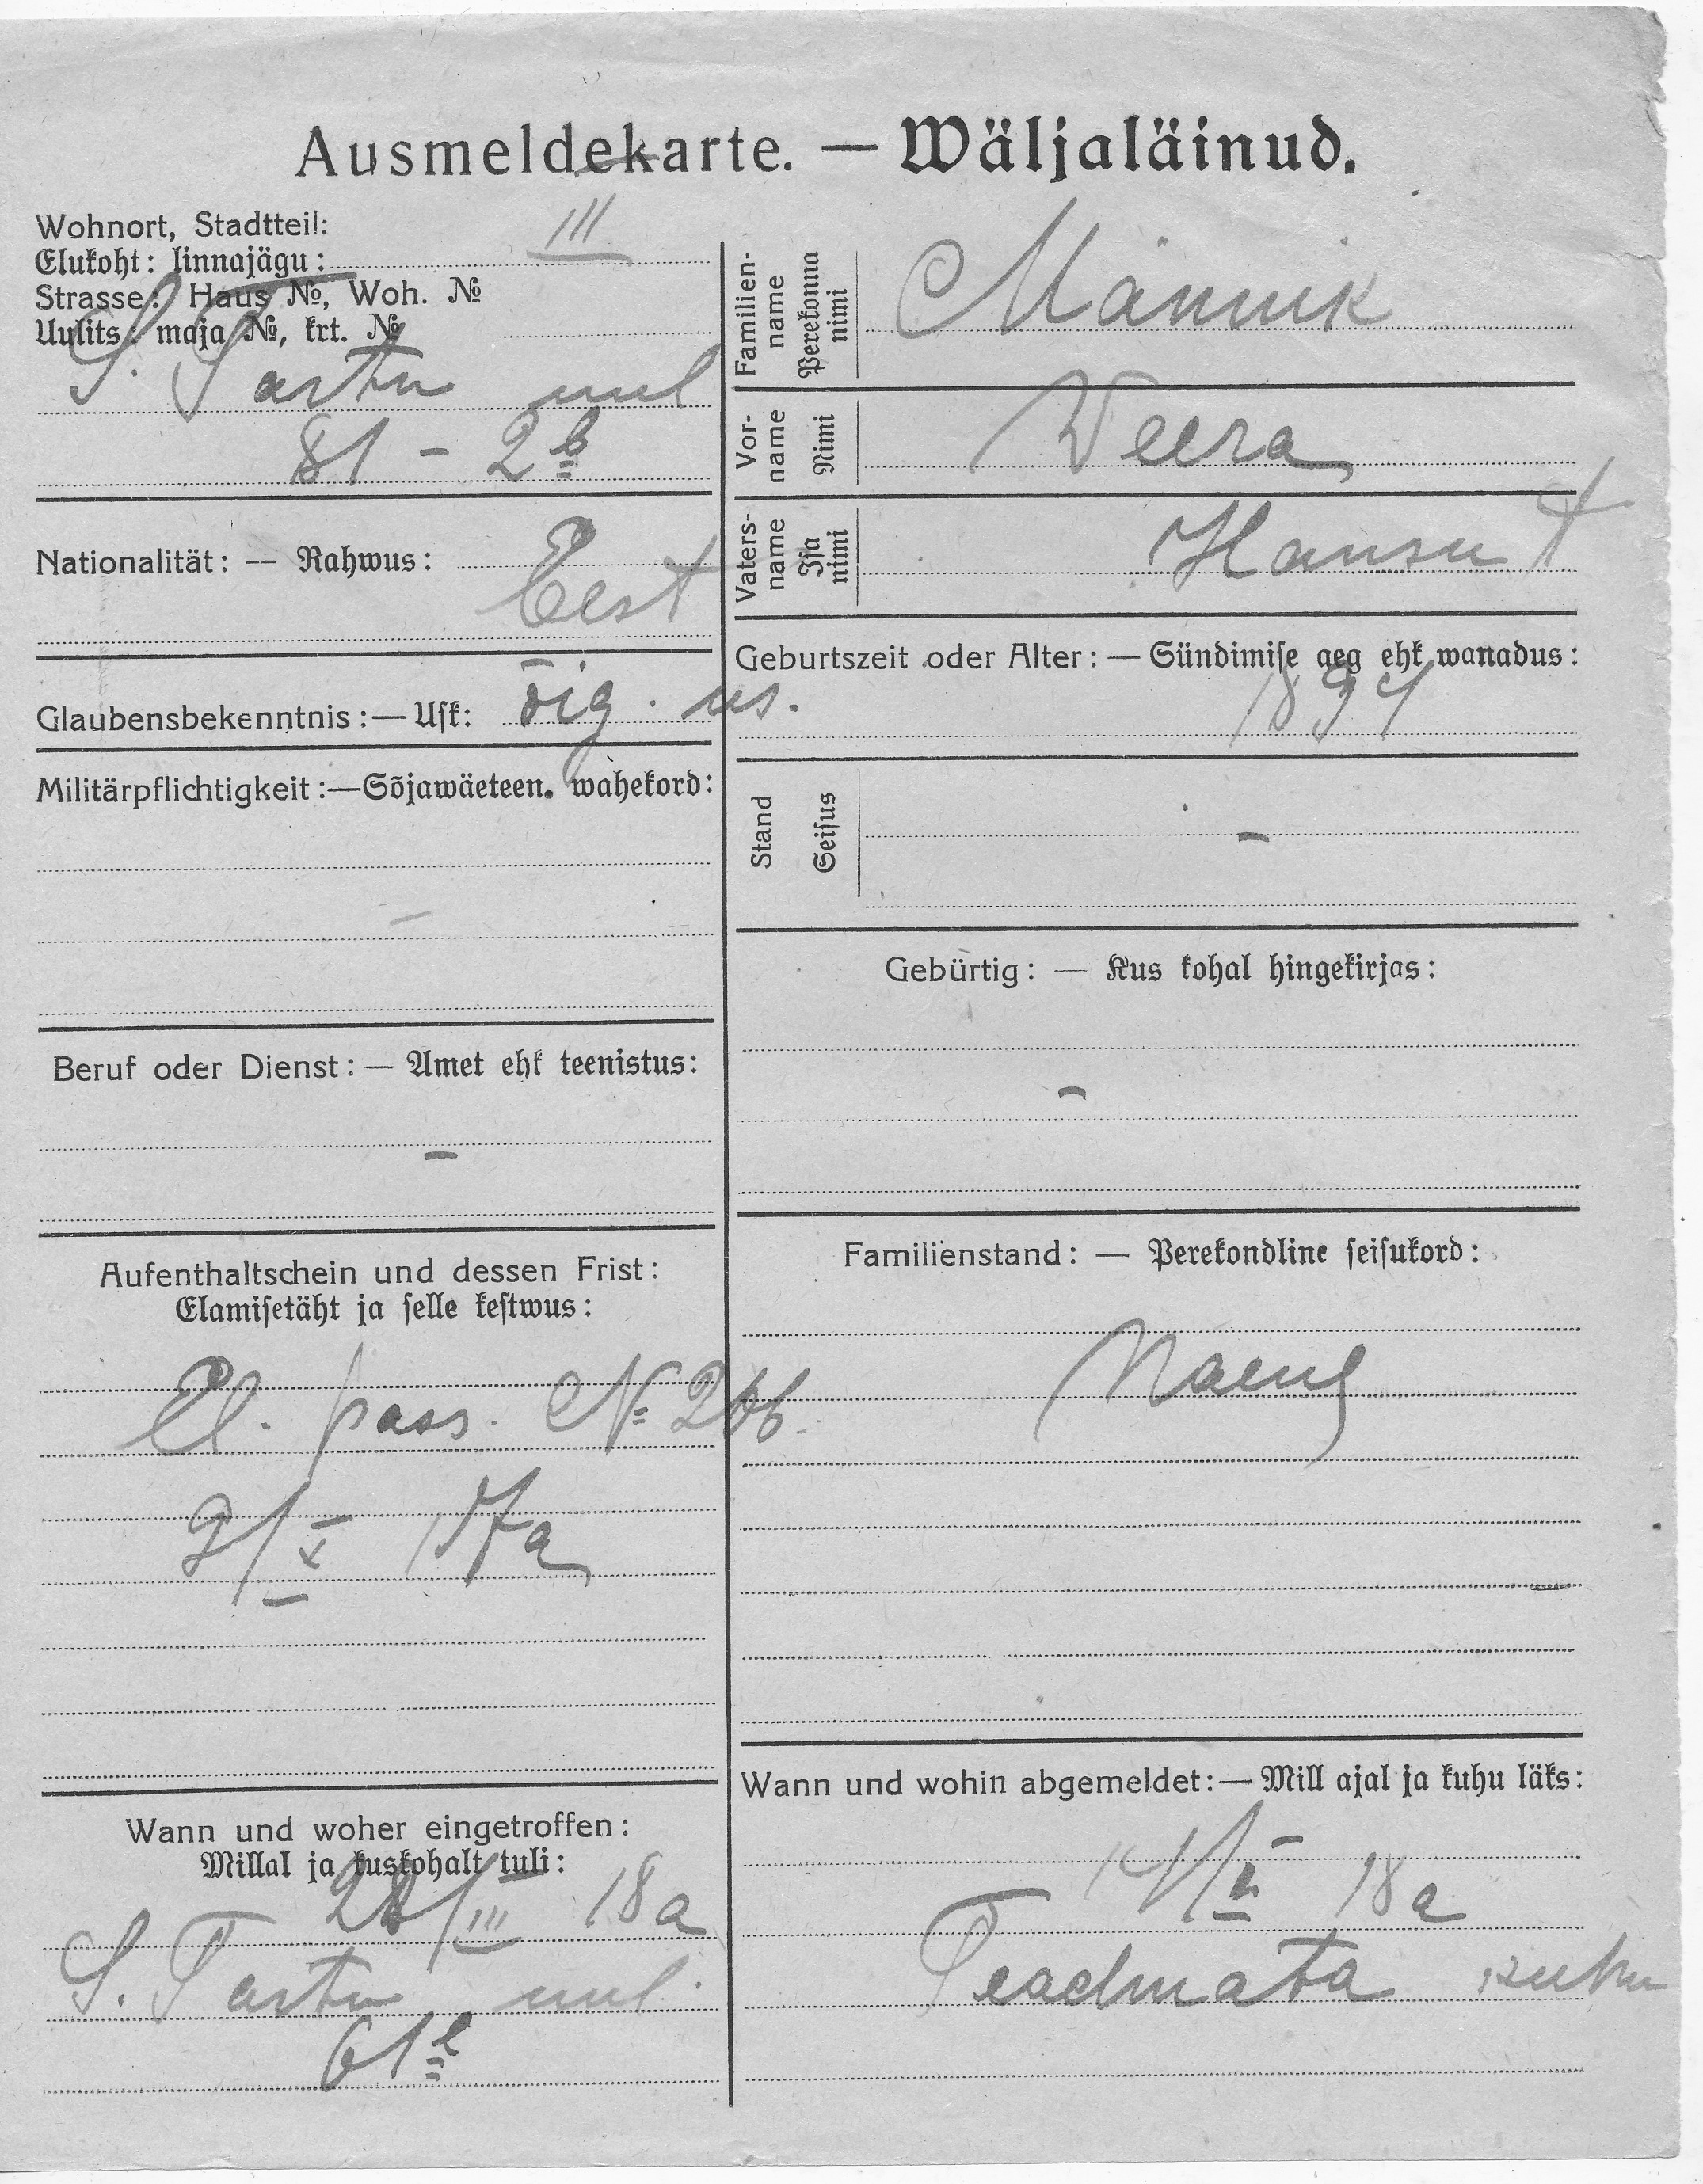 Ausmeldekarte. — Wäljaläinud.
Wohnort, Stadtteil:
Elukoht: linnajägu: III
Strasse: Haus №, Woh. №
Uulits: maja №, krt. №
S. Tartu uul
81 – 2 b
Nationalität: — Rahwus:
Eest
Glaubensbekenntnis: — Usk: õig. us.
Militärpflichtigkeit: — Sõjawäeteen. wahekord:
–
Beruf oder Dienst: — Amet ehk teenistus:
–
Aufenthaltschein und dessen Frist:
Elamisetäht ja selle kestwus:
El. pass. №
9/X 17 a
Wann und woher eingetroffen:
Millal ja kuskohalt tuli:
28/III 18 a
S. Tartu uul.
61
Familien-
name
Perekonna
nimi
Männik
Vor-
name
Nimi
Weera
Vaters-
name
Isa
nimi
Hansu t
Geburtszeit oder Alter: — Sündimise aeg ehk wanadus:
1894
Stand
Seisus
–
Gebürtig: — Kus kohal hingekirjas:
–
Familienstand: — Perekondline seisukord:
Naene
Wann und wohin abgemeldet: — Mill ajal ja kuhu läks:
18 a
Teadmata kuhu